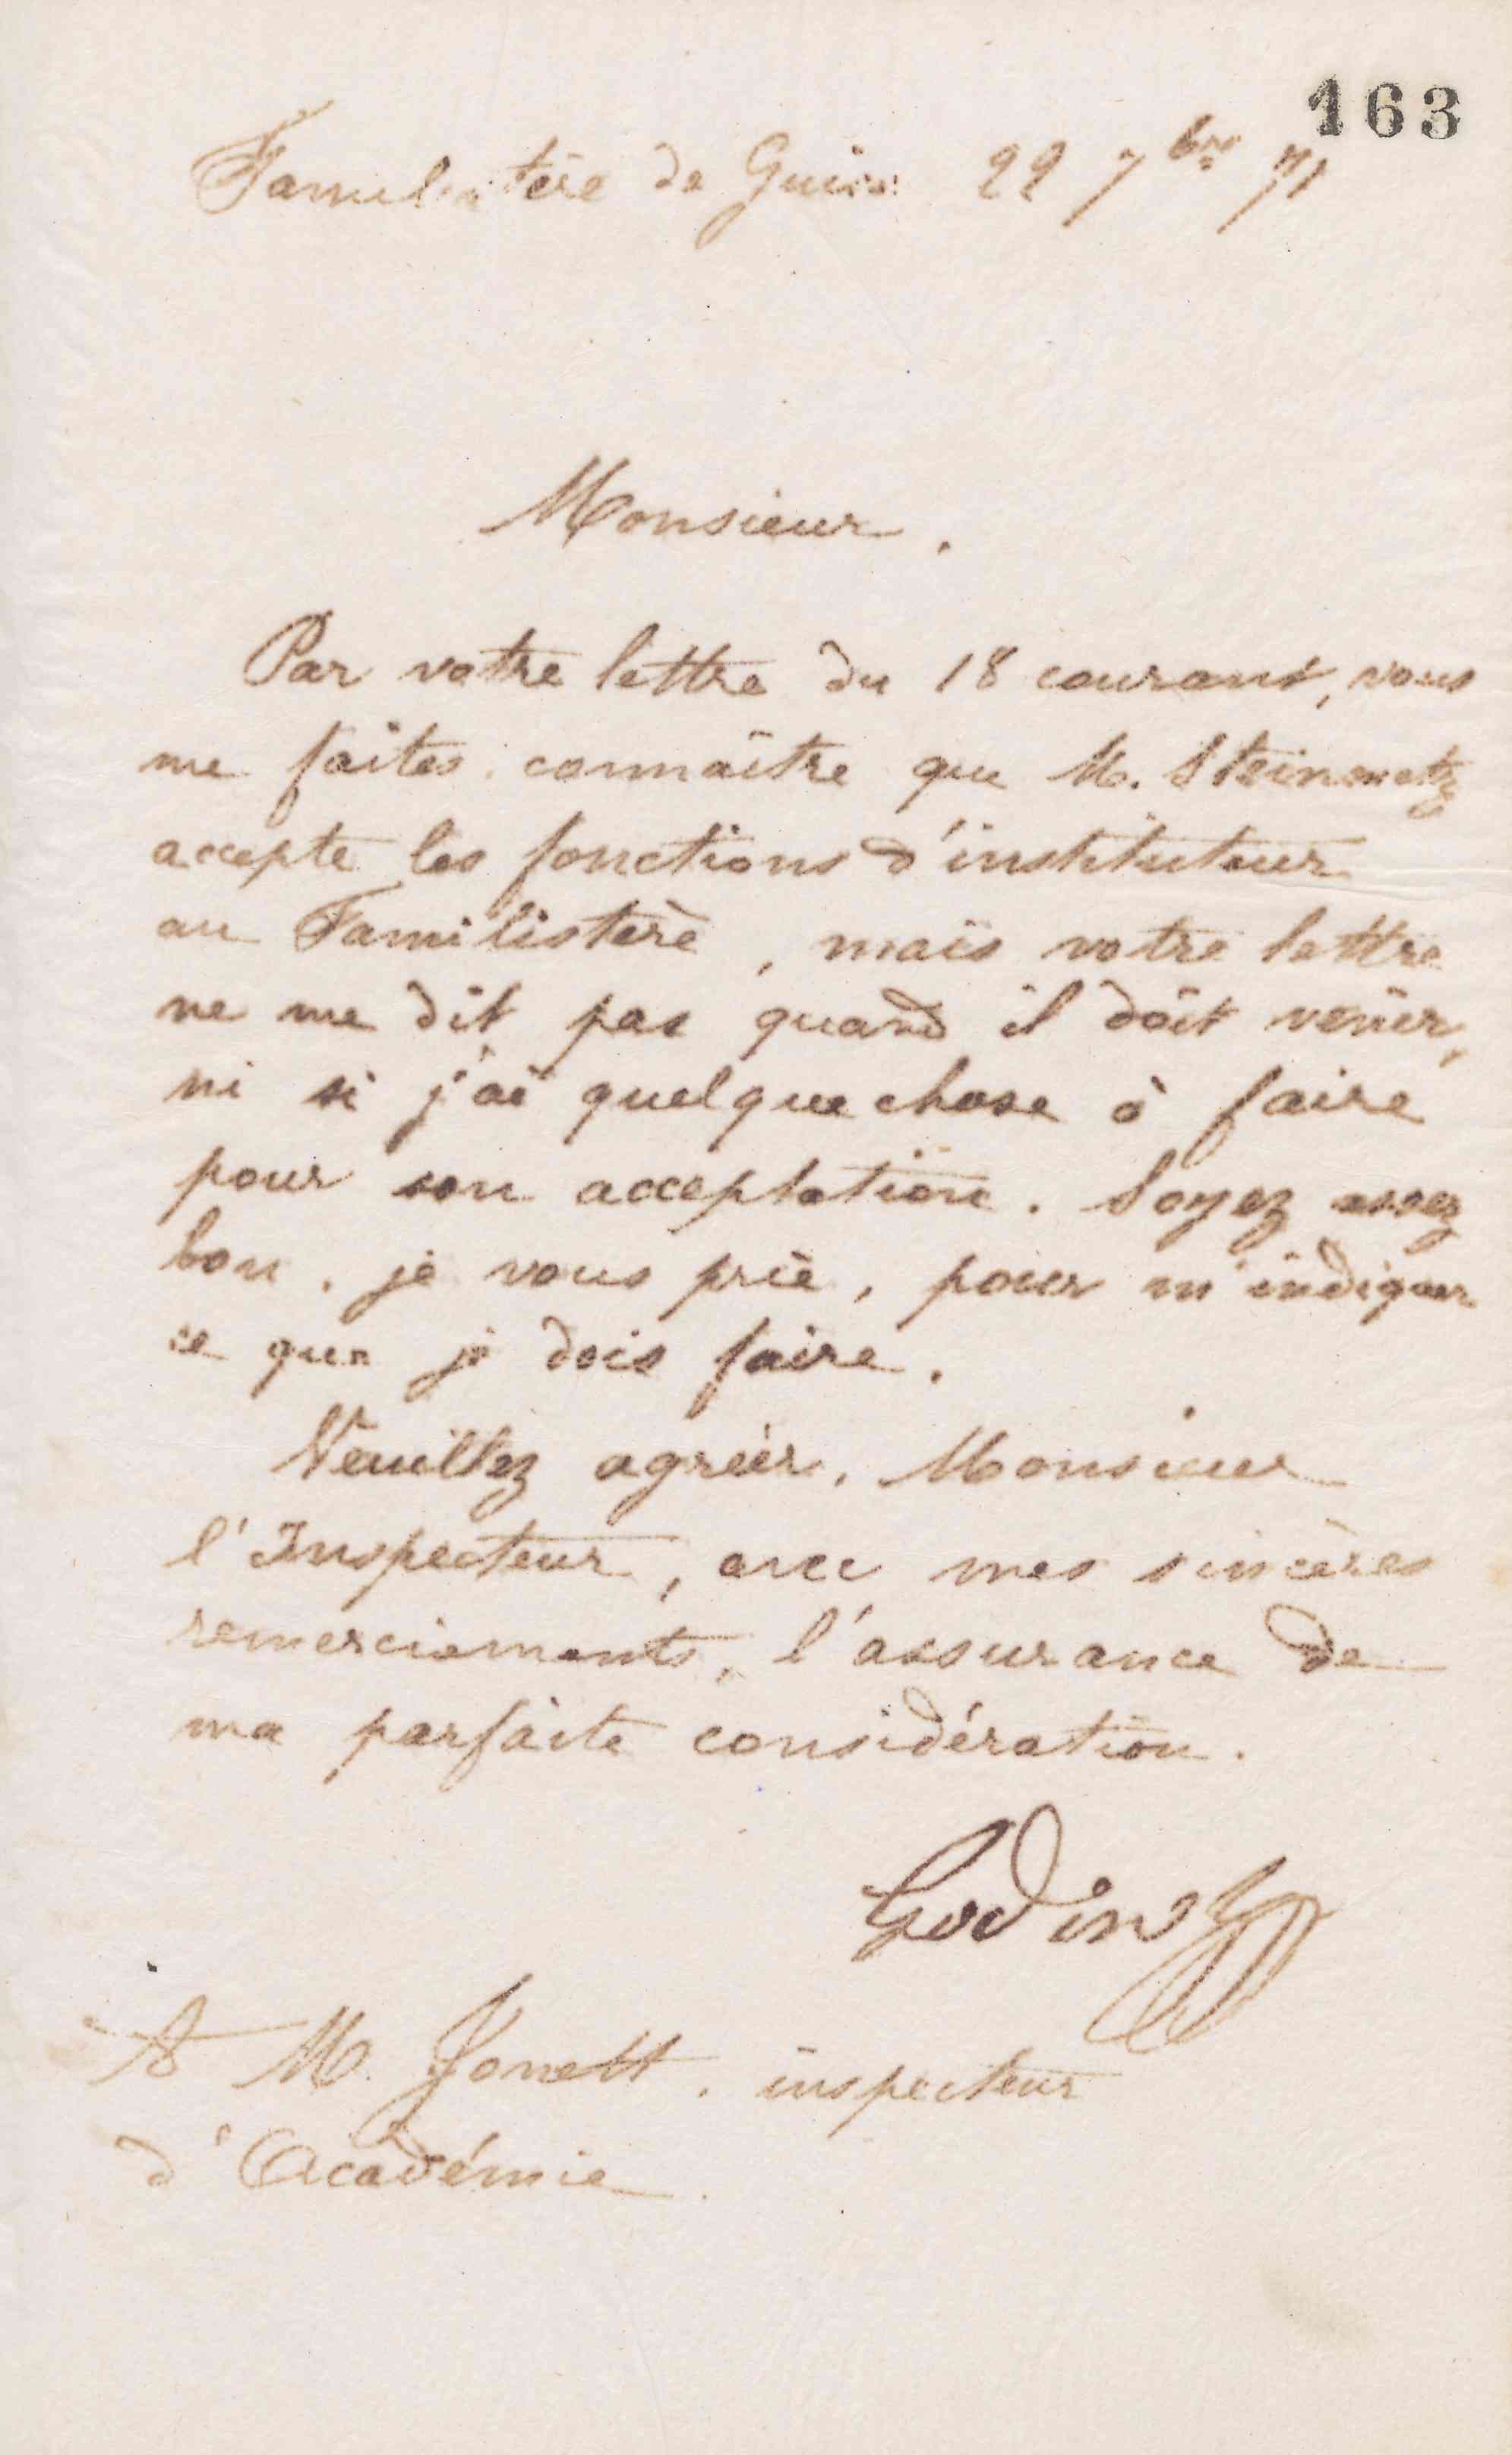 163
Familistère de Guise 22 7bre 71
Monsieur.
Par votre lettre du 18 courant, vous
me faites connaître que M. Steinmetz
accepte les fonctions d'instituteur
au Familistère, mais votre lettre
ne me dit pas quand il doit venir,
ni si j'ai quelque chose à faire
pour son acceptation. Soyez assez
bon, je vous prie, pour m'indiquer
ce que je dois faire.
Veuillez agréer, Monsieur
l'Inspecteur, avec mes sincères
remerciements, l'assurance de
ma parfaite considération.
Godin
A M. inspecteur
d'Académie